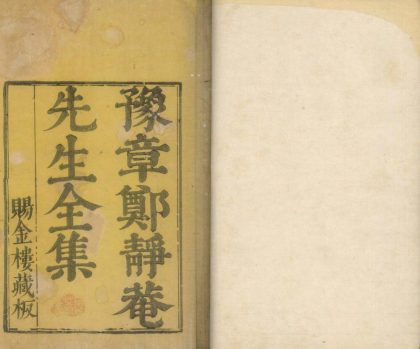 豫章鄭靜菴
先生全集
賜金樓藏板